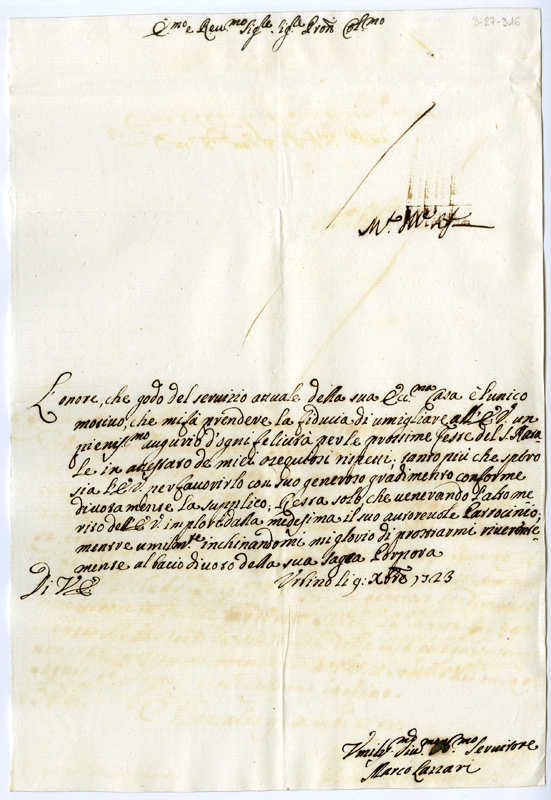 3-27-316
E.mo e Reu.mo Sig.re Sig.re Pron Col.mo
L'onore, che godo del seruizio attuale della sua Ecc.ma Casa è l'unico
motiuo, che mi fà prendere la fiducia di umigliare all'E.V. un
pieniss.mo augurio d'ogni felicità per le prossime feste del S. Nata
le in attestato de miei ossequiosi rispetti; tanto più che spero
sia l'E.V. per fauorirlo con suo generoso gradimento conforme
diuotamente la supplico; Resta solo, che uenerando l'alto me
rito dell'E.V. implori dalla medesima il suo autoreuole Patrocinio,
mentre umilm.te inchinandomi mi glorio di prostrarmi riuerente
mente al bacio diuoto della sua Sagra Porpora
Di V.E. Urbino li 9: Xbre 1723
Vmilis.mo Diu.mo Servitore
Marco Lazzari